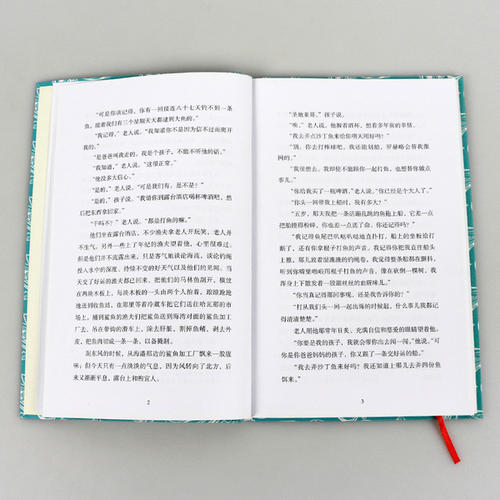 “可是你该记得，你有一回接连八十七天钓不到一条
鱼，接着我们有三个星期天天都逮到大鱼的。”
“我记得，”老人说，“我知道你不是因为信不过而离开
我的。”
“是爸爸叫我走的，我是个孩子，不能不听他的话。”
“我知道，”老人说，“这很正常。”
“他没多大信心。”
“是的，”老人说，“可是我们有，是不是？”
“是的，”孩子说，“我请你到露台酒店喝杯啤酒吧，然
后把东西拿回家。”
“干吗不？”老人说，“都是打鱼的嘛。”
他们坐在露台酒店，不少渔夫拿老人开玩笑，老人并
不生气。另外一些上了年纪的渔夫望着他，心里很难过，
但是他们并不流露出来，只是客客气气地谈论海流，谈论钓绳
投入水中的深度、持续不变的好天气以及他们的见闻。当
天交了好运的渔夫都已回来，把他们的马林鱼剖开，横放
在两块木板上，每块木板的一头由两个人抬着，踉踉跄跄
地送到收鱼站，在那里等着冷藏车把它们送往哈瓦那的市
场上。捕到鲨鱼的渔夫们把鲨鱼送到海湾对面的鲨鱼加工
厂去，吊在带钩的滑车上，除去肝脏，割掉鱼鳍，剥去外
皮，把鱼肉切成一条一条，以备腌制。
刮东风的时候，从海港那边的鲨鱼加工厂飘来一股腥
味；但今天只有一点淡淡的气息，因为风转向了北方，后
来又渐渐平息，露台上和煦宜人。
2
“圣地亚哥。”孩子说。
“唉，”老人说，他握着酒杯，想着多年前的事情。
“我去弄点沙丁鱼来给你明天用好吗？”
“别，你去打棒球吧。我还能划船，罗赫略会帮我撒
网的。”
“我很想去。我即使不能跟你一起打鱼，也想替你做点
事儿。”
“你给我买了一瓶啤酒，”老人说，“你已经是个大人了。”
“你头一回带我上船时，我有多大？”
“五岁，那天我把一条活蹦乱跳的鱼拖上船，它差一点
把船撞得粉碎，你也差一点送了命，还记得吗？”
“我记得鱼尾巴叭啪叭啪地直扑打，船上的坐板给打
断了，还有你拿棍子打鱼的声音。我记得你把我直往船头
上推，那儿放着湿漉漉的钓绳卷，我觉得整条船都在颤抖，
听到你噼里啪啦用棍子打鱼的声音，像在砍倒一棵树，我
浑身上下只闻到一股甜丝丝的血腥味儿。”
“你当真记得那回事吗，还是我告诉你的？”
“打从我们头一回一起出海的时候起，什么事儿我都记
得清清楚楚。”
老人用他那常年日炙、充满自信和慈爱的眼睛望着他。
“你要是我的孩子，我就会带你出去闯一闯，”他说，“可
你是你爸爸妈妈的孩子，你又跟了一条交好运的船。”
“我去弄沙丁鱼来好吗？我还知道上哪儿去弄四份鱼
饵来。”
3